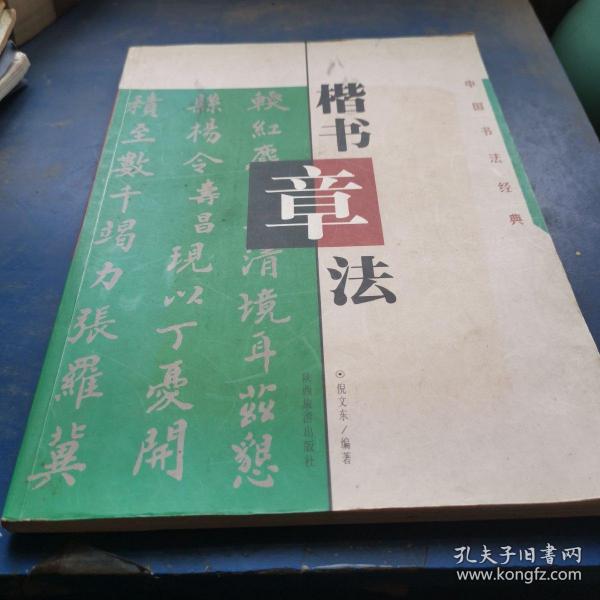 中国书法经典
楷书
章
法
⊙倪文东/编著
陕西旅游出版社
轓红尘
清境耳兹恳
縣楊令壽昌現以丁憂開
積至數千竭力張羅冀
孔夫子旧书网
www.kongfz.com